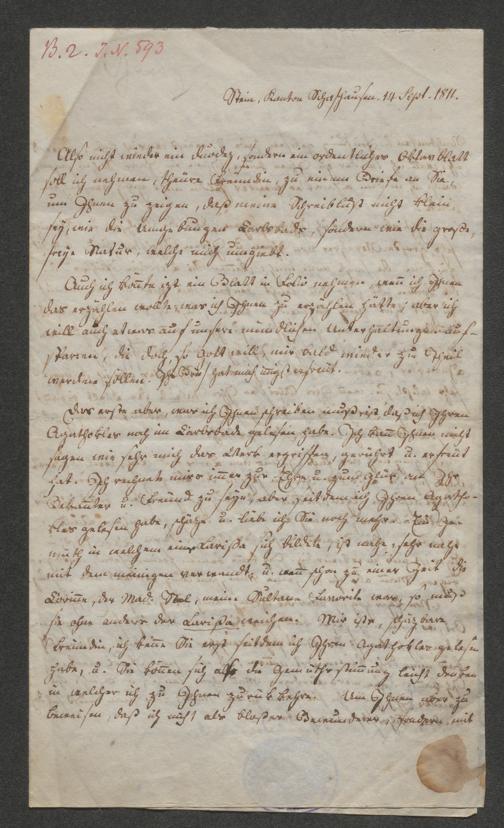 B. 2. J. N. 593
Stein, Kanton Schafhausen. 14 Sept. 1811.
Also nicht wieder ein Duodez, sondern ein ordentliches Oktavblatt
soll ich nehmen, theure Freundin, zu einem Briefe an Sie
um Ihnen zu zeigen, daß meine Schreiblust nicht klein
sey, wie die Umgebungen Carlsbads, sondern wie die große,
freye Natur, welche mich umgiebt.
Auch ich könnte izt ein Blatt in Folio nehmen, wenn ich Ihnen
das erzählen wollte, was ich Ihnen zu erzählen hätte; aber ich
will auch etwas auf unsere mündlichen Unterhaltungen auf-
sparen, die doch, so Gott will, mir bald wieder zu Theil
werden sollen. Ihr Brief hat mich erfreut.
Das erste aber, was ich Ihnen schreiben muß, ist daß ich Ihren
Agathokles noch im Carlsbade gelesen habe. Ich kann Ihnen nicht
sagen wie sehr mich das Werk ergriffen, gerührt u. erfreut
hat. Ich rechnete mirs immer zur Ehre u. zum Glück an Ihr
Bekannter u. Freund zu seyn, aber seitdem ich Ihren Agatho-
kles gelesen habe, schätze u. liebe ich Sie noch mehr. Das Ge-
müth in welchem eine Larissa sich bildete, ist nahe, sehr nahe
mit dem meinigen verwandt, u. wenn schon zu einer Zeit die
Corinne, der Mad. Stael, meine Sultane Favorite war, so muß
sie ohne anders der Larissa weichen. Mir ists, schätzbare
Freundin, ich kenne Sie erst seitdem ich Ihren Agathokles gelesen
habe, u. Sie können sich also die Gemüthsstimmung leicht denken
in welcher ich zu Ihnen zurückkehre. Um Ihnen aber zu
beweisen, daß ich nicht als bloßer Bewunderer, sondern mit